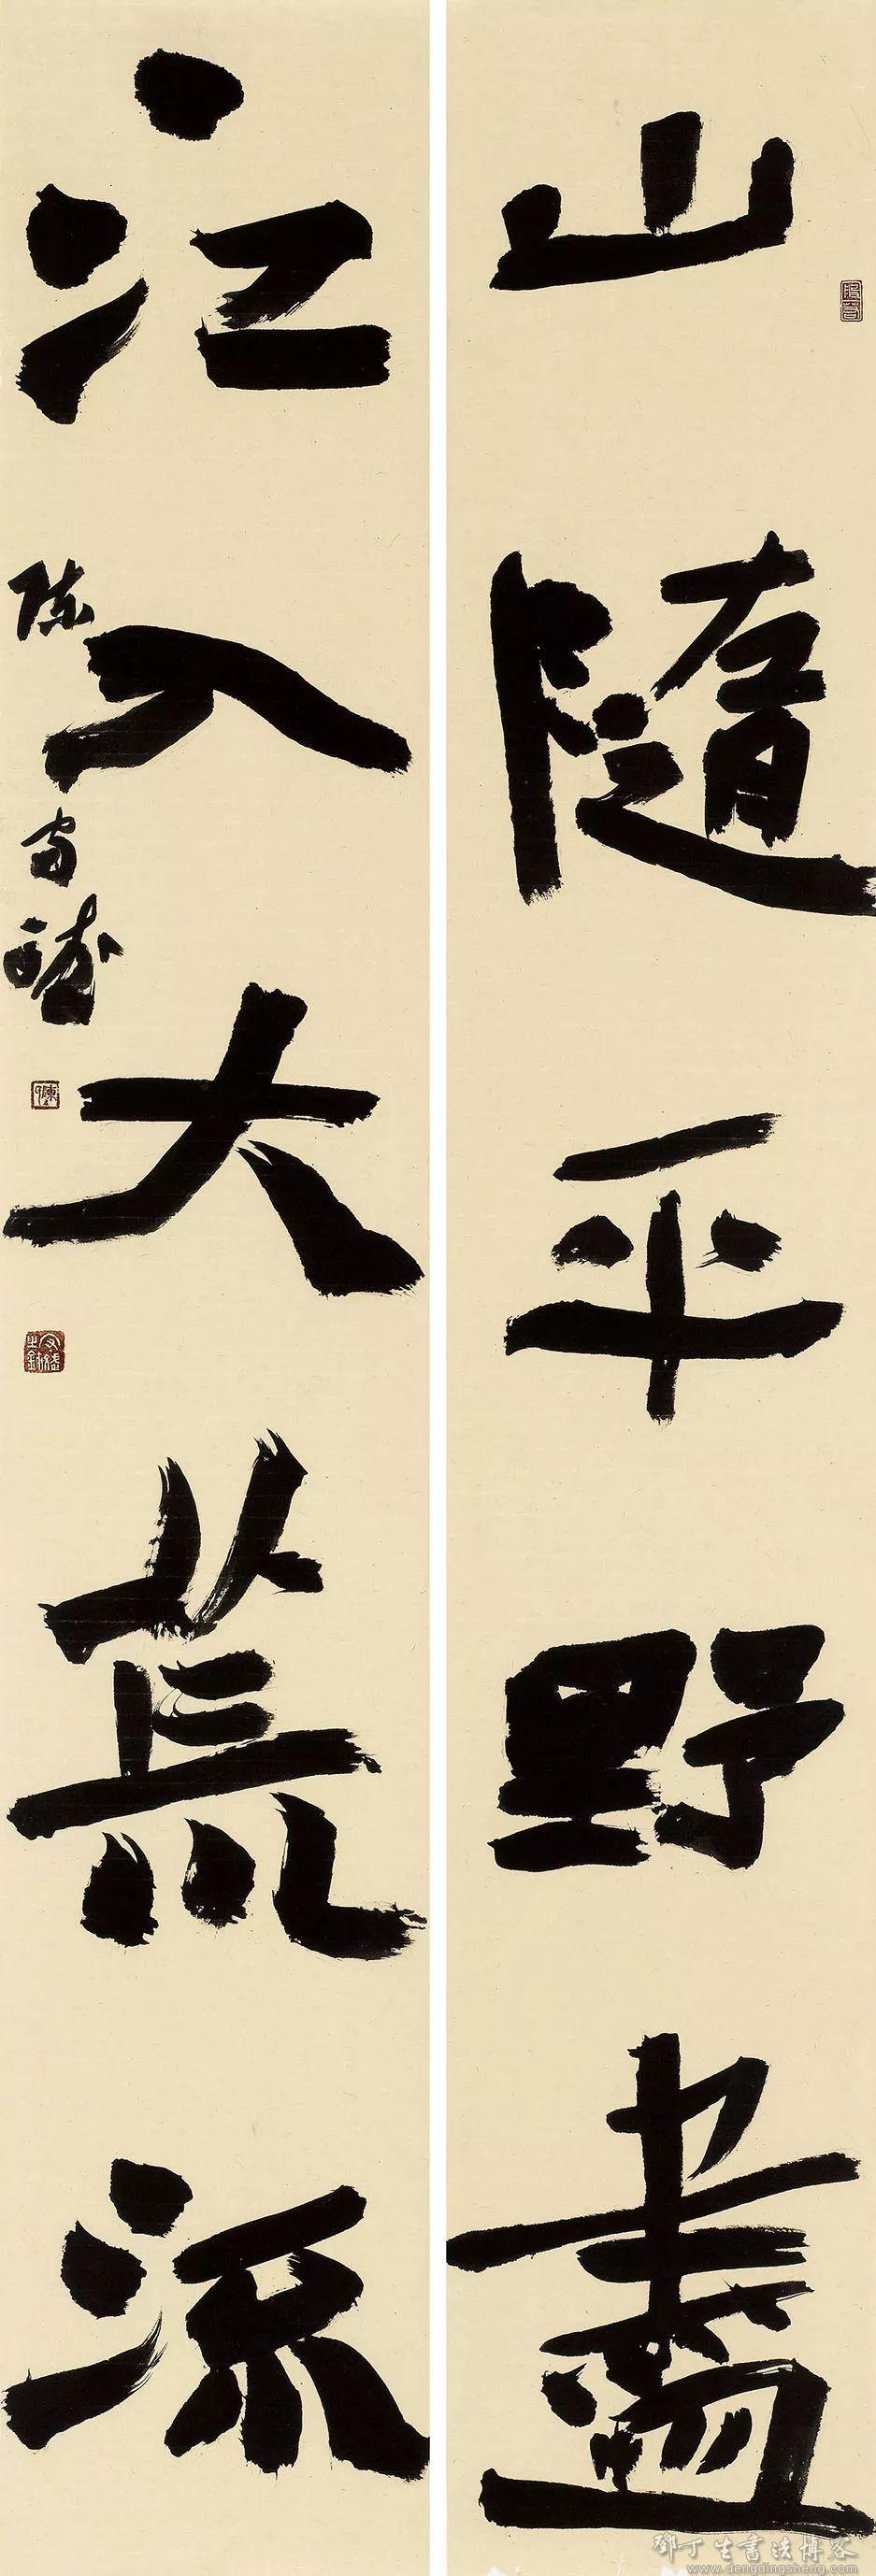 山隨平野盡
江入大荒流
陈
鄧丁生書法博客
www.dengdingsheng.com